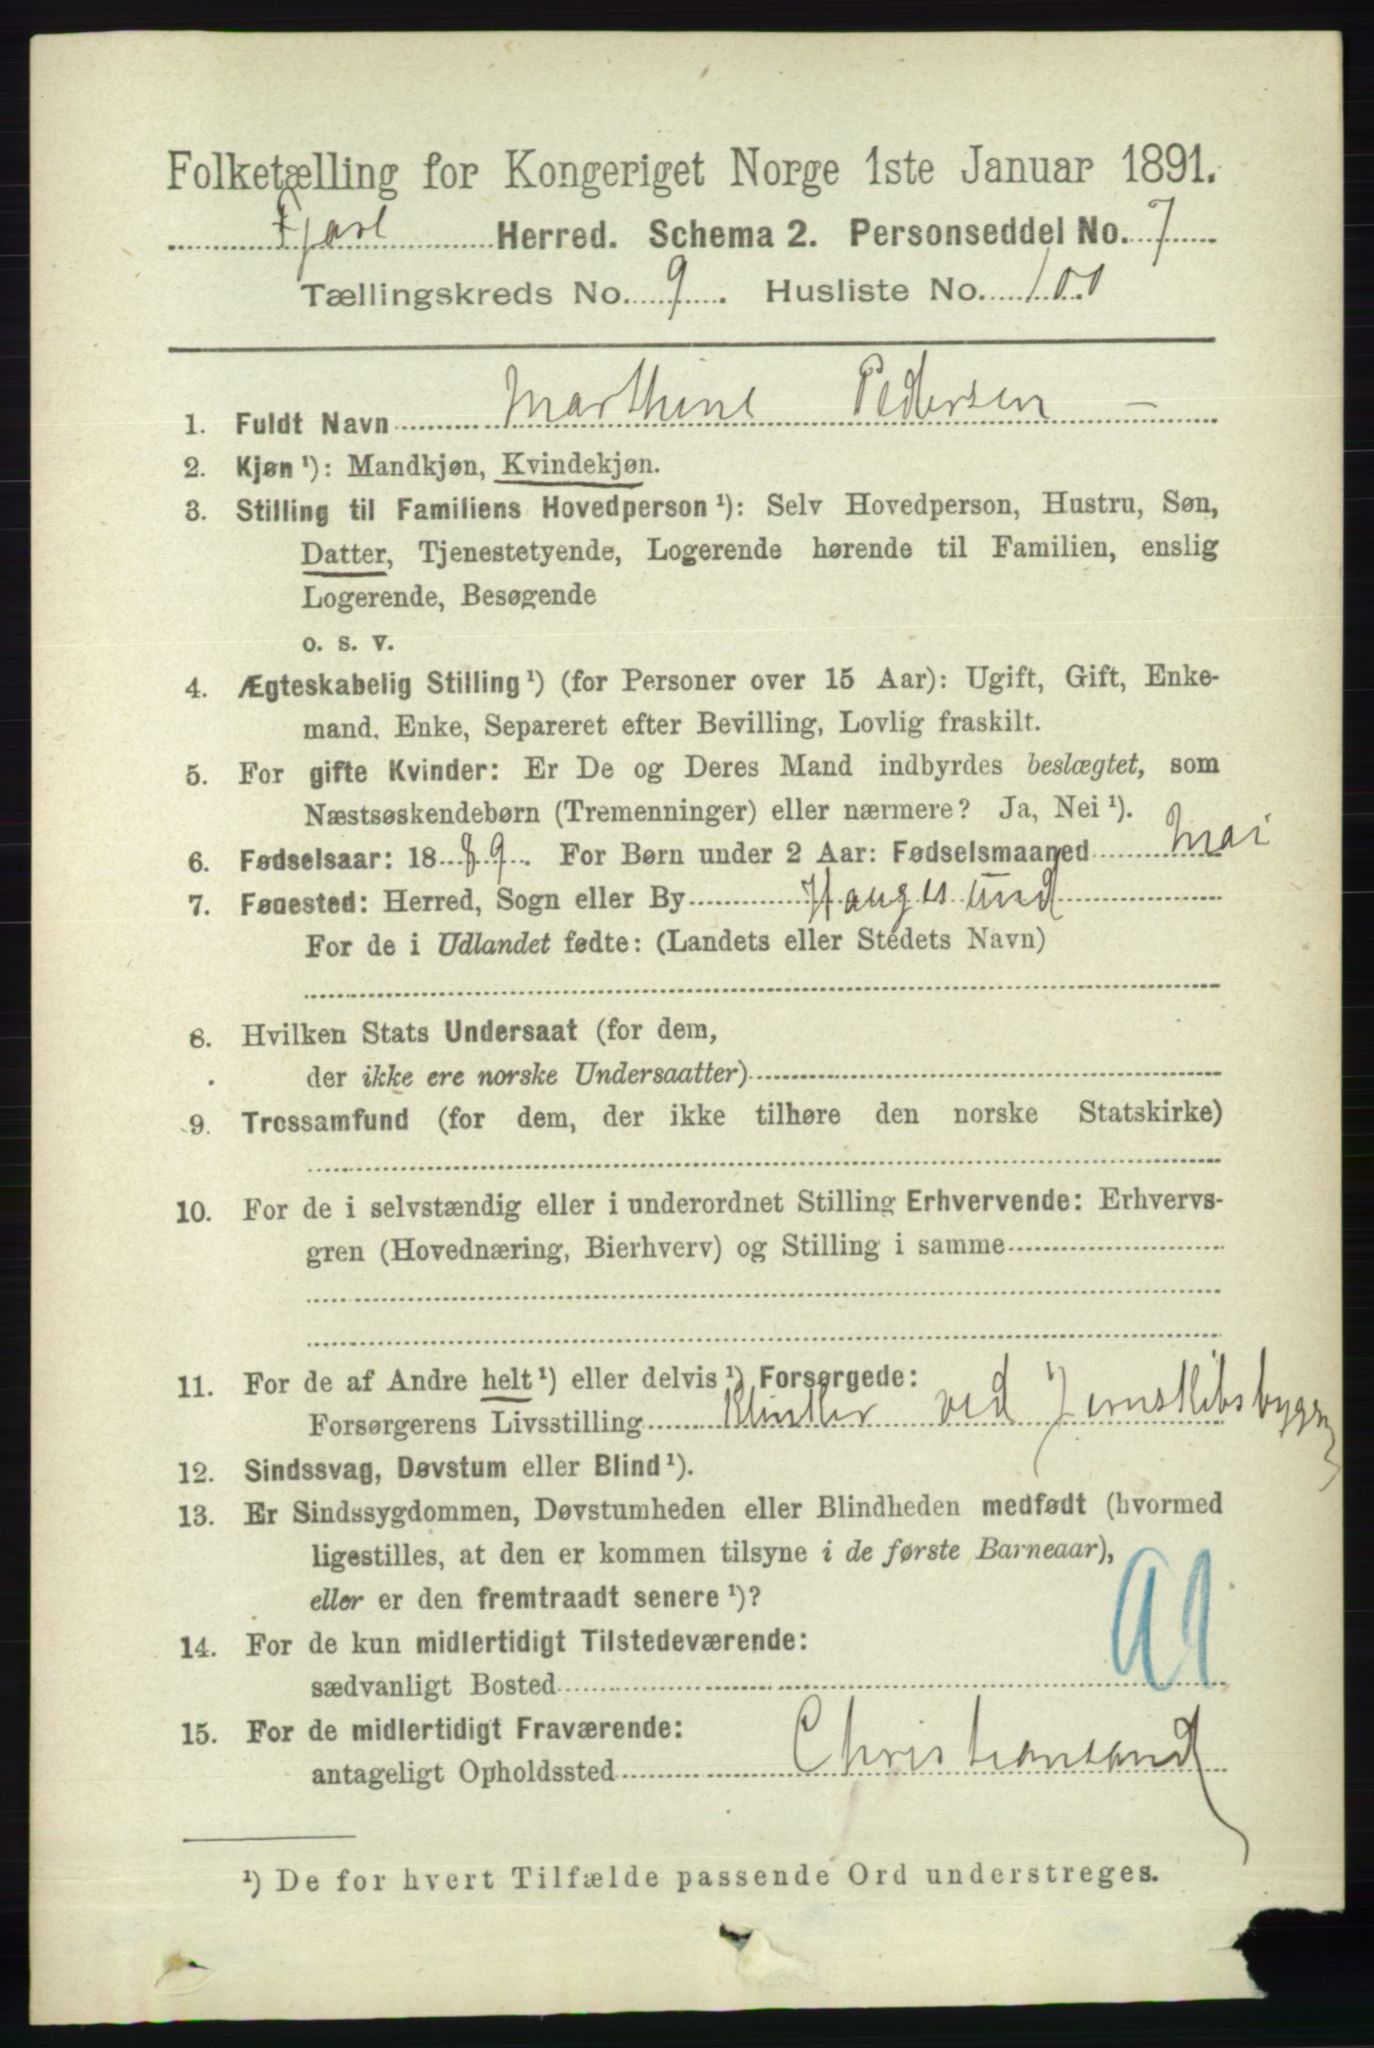 Folketælling for Kongeriget Norge 1ste Januar 1891.
Fjære Herred. Schema 2. Personseddel No. 7
Tællingskreds No. 9. Husliste No. 100
1. Fuldt Navn Marthine Pedersen –
2. Kjøn ¹): Mandkjøn, Kvindekjøn.
3. Stilling til Familiens Hovedperson ¹): Selv Hovedperson, Hustru, Søn,
Datter, Tjenestetyende, Logerende hørende til Familien, enslig
Logerende, Besøgende
o. s. v.
4. Ægteskabelig Stilling ¹) (for Personer over 15 Aar): Ugift, Gift, Enke-
mand, Enke, Separeret efter Bevilling, Lovlig fraskilt.
5. For gifte Kvinder: Er De og Deres Mand indbyrdes beslægtet, som
Næstsøskendebørn (Tremenninger) eller nærmere? Ja, Nei ¹).
6. Fødselsaar: 1889. For Børn under 2 Aar: Fødselsmaaned Mai
7. Fødested: Herred, Sogn eller By Haugesund
For de i Udlandet fødte: (Landets eller Stedets Navn)
8. Hvilken Stats Undersaat (for dem,
der ikke ere norske Undersaatter)
9. Trossamfund (for dem, der ikke tilhøre den norske Statskirke)
10. For de i selvstændig eller i underordnet Stilling Erhvervende: Erhvervs-
gren (Hovednæring, Bierhverv) og Stilling i samme
11. For de af Andre helt ¹) eller delvis ¹) Forsørgede:
Forsørgerens Livsstilling Klinker ved Jernskibsbygge
12. Sindssvag, Døvstum eller Blind ¹).
13. Er Sindssygdommen, Døvstumheden eller Blindheden medfødt (hvormed
ligestilles, at den er kommen tilsyne i de første Barneaar),
eller er den fremtraadt senere ¹)?
14. For de kun midlertidigt Tilstedeværende:
sædvanligt Bosted
15. For de midlertidigt Fraværende:
antageligt Opholdssted Christiansand
¹) De for hvert Tilfælde passende Ord understreges.